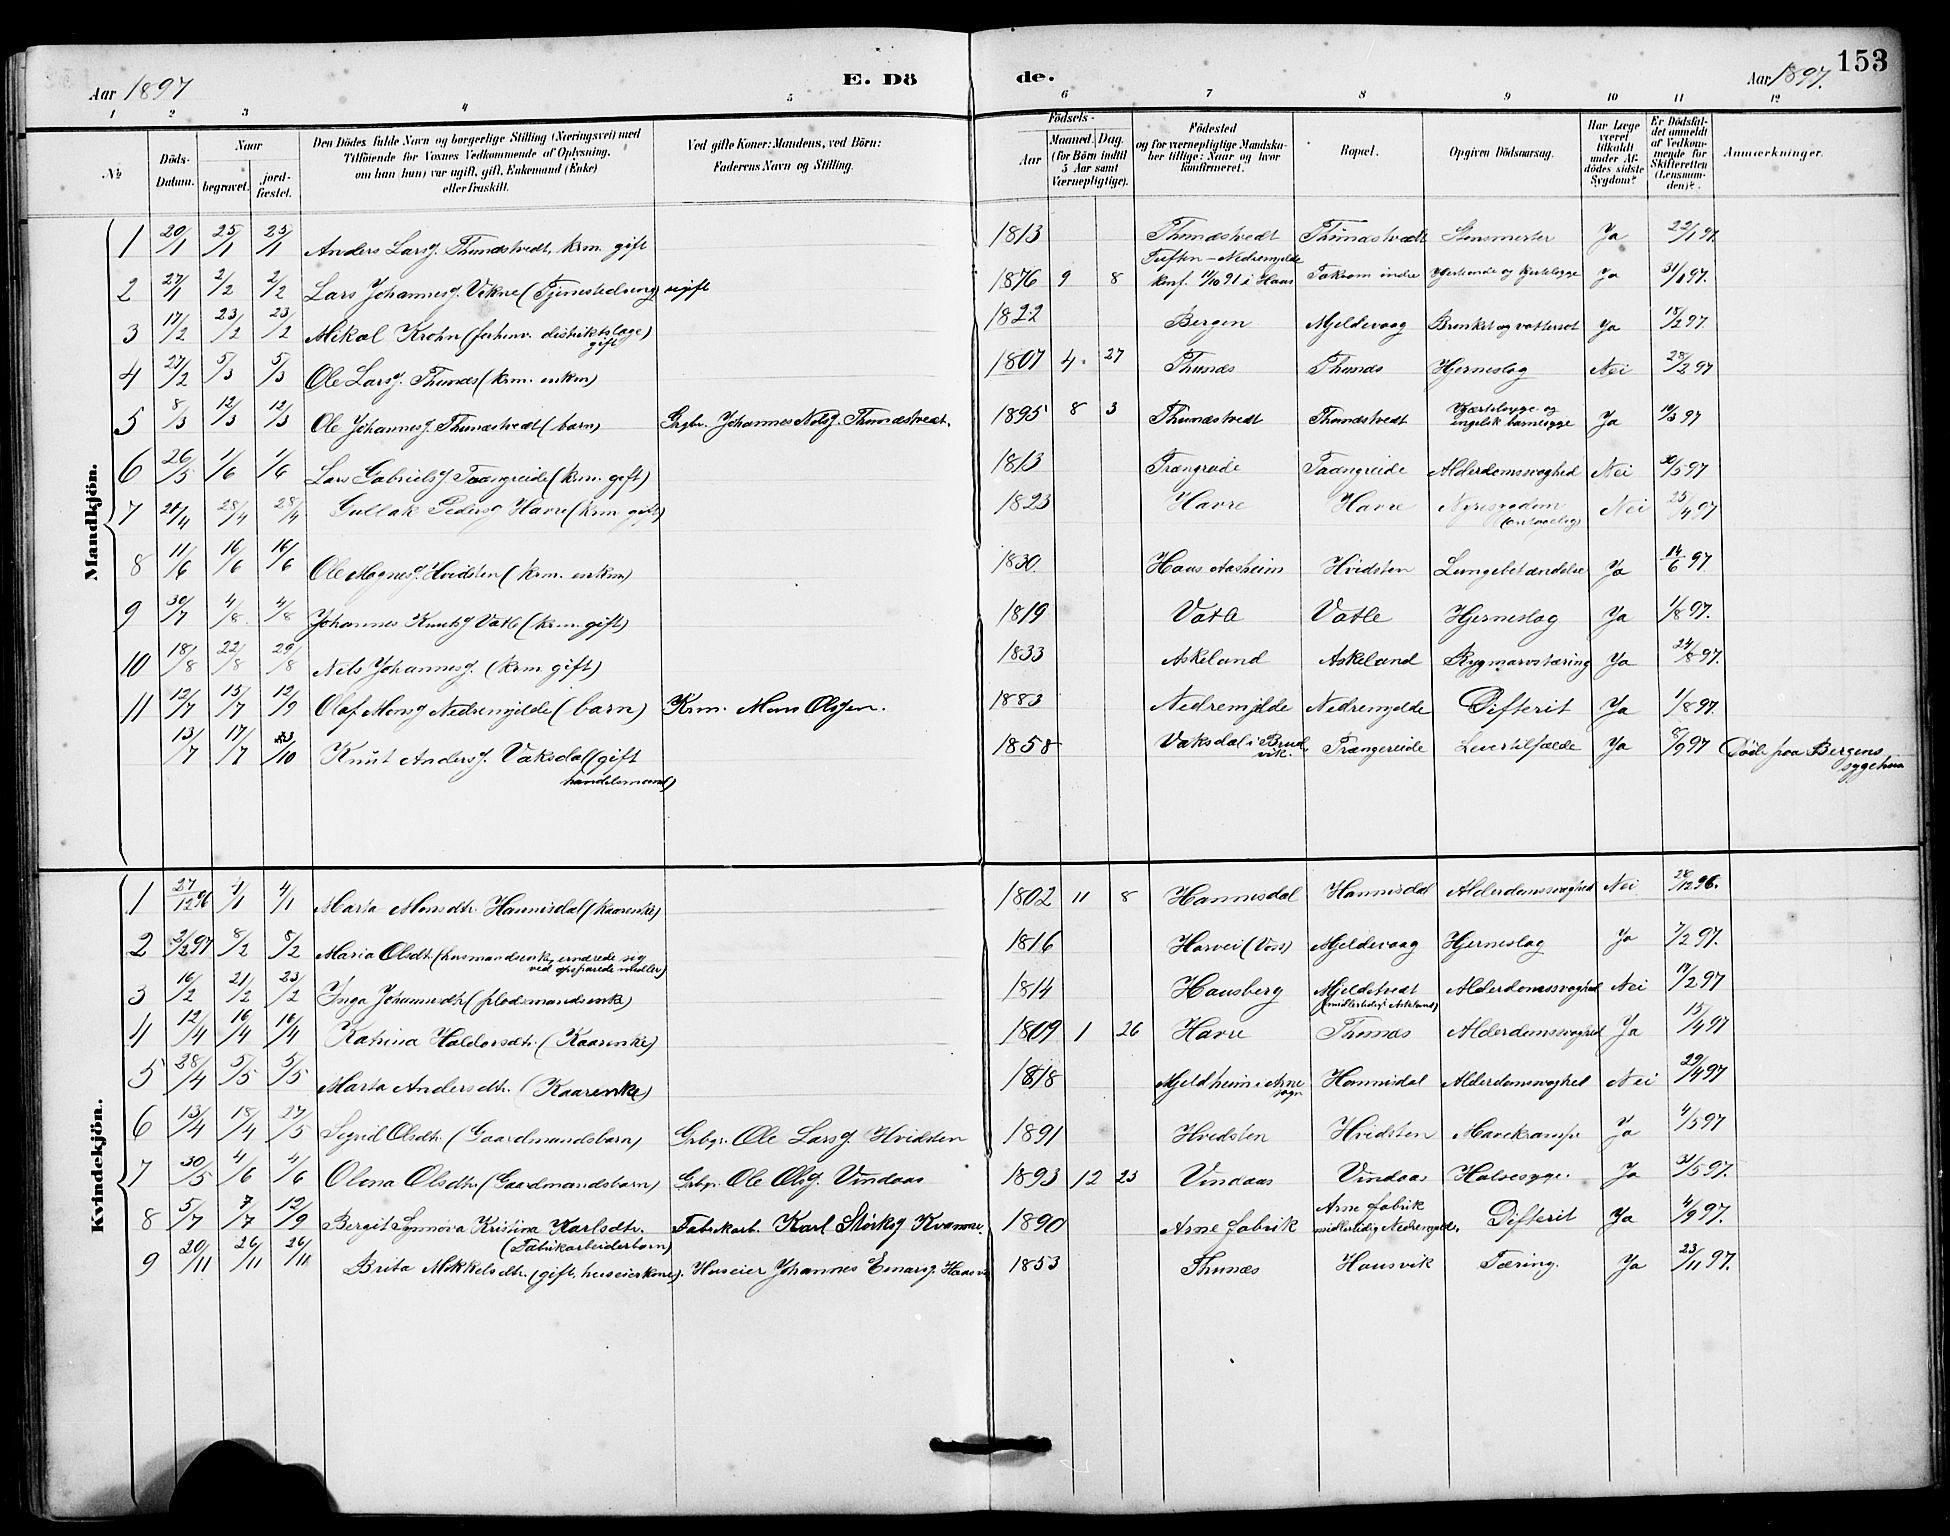 153
Aar 1897 E. Dö de. Aar 1897.
1 2 3 4 5 6 7 8 9 10 11 12
№ Döds-Datum. Naar begravet. jordfæstet. Den Dödes fulde Navn og borgerlige Stilling (Næringsvei) med Tilföiende for Voxnes Vedkommende af Oplysning, om han (hun) var ugift, gift, Enkemand (Enke) eller fraskilt. Ved gifte Koner: Mandens, ved Börn: Faderens Navn og Stilling. Födsels- Aar Maaned. Dag. (for Börn indtil 5 Aar samt Værnepligtige). Födested og for værnepligtige Mandskaber tillige: Naar og hvor konfirmeret. Bopæl. Opgiven Dödsaarsag. Har Læge været tilkaldt under Afdödes sidste Sygdom? Er Dödsfaldet anmeldt af Vedkommende for Skifteretten (Lensmanden)? Anmærkninger.
Mandkjön.
1 20/1 25/1 23/1 Anders Larsg. Thunæstvedt, krm. gift 1813 Thunæstvedt Thunæstvedt Ja 22/1 97.
2 27/1 2/2 2/2 Lars Johannesg. Vikne (Tjenestedreng) ugift 1876 9 8 Tuften - Nedremjelde konf. 11/10 91 i Haus indre og Ja 31/1 97.
3 17/2 23/2 23/2 Mikal Krohn (forhenv. distriktslæge) gift 1822 Bergen Mjeldevaag og vattersot Ja 18/2 97
4 27/2 5/3 5/3 Ole Larsg. Thunæs (krm. enkm) 1807 4. 27 Thunæs Thunæs Hjerneslag Nei 28/2 97
5 8/3 12/3 12/3 Ole Johannesg. Thunæstvedt (barn) Grbr. Johannes Nilsg. Thunæstvedt. 1895 8 3 Thunæstvedt Thunæstvedt og engelsk Ja 10/3 97
6 26/5 1/6 1/6 Lars Gabrielsg. Taangreide (krm. gift) 1813 Trængreide Taangreide Alderdomssvaghed Nei 30/5 97
7 21/4 28/4 28/4 Gullak Pedersg Havre (krm gift) 1823 Havre Havre Nyresygdom (antagelig) Nei 25/4 97
8 11/6 16/6 16/6 Ole Magnesg. Hvidsten (krm. enkm) 1830. Haus Aasheim Hvidsten Lungebetændelse Ja 14/6 97
9 30/7 4/8 4/8 Johannes Knutsg Vatle (krm. gift) 1819 Vatle Vatle Hjerneslag Ja 1/8 97.
10 18/8 22/8 29/8 Nils Johannesg. (krm gift) 1833 Askeland Askeland Rygmarvstæring Ja 24/8 97.
11 12/7 15/7 12/9 Olaf Monsg Nedremjelde (barn) Krm. Mons Olsgen. 1883 Nedremjelde Nedremjelde Difterit Ja 1/8 97.
13/7 17/7 /10 Knut Andersg. Vaksdal (gift handelsmand) 1858 Vaksdal i Bruvik. Trængereide Levertilfælde Ja 8/9 97 Död paa Bergens sygehus
Kvindekjön.
1 27/12 96 4/1 4/1 Marta Monsdtr. Hannisdal (kaarenke) 1802 11 8 Hannisdal Hannisdal Alderdomssvaghed Nei 28/12 96.
2 2/2 97 8/2 8/2 Maria Olsdtr. (husmandsenke, ernærede sig ved opsparede midler) 1816 Horvei (Voss) Mjeldevaag Hjerneslag Ja 7/2 97.
3 16/2 21/2 23/2 Inga Johannesdtr. (pladsmandsenke) 1814 Hausberg Mjeldetvedt (midlertidig i Askeland) Alderdomssvaghed Nei 17/2 97
4 12/4 16/4 16/4 Katrina Haldorsdtr. (Kaarenke) 1809 1 26 Havre Thunæs Alderdomssvaghed Ja 15/4 97
5 28/4 5/5 5/5 Marta Andersdtr. (Kaarenke) 1818 Mjeldheim i Arne sogn Hannisdal Alderdomssvaghed Nei 29/4 97
6 13/4 18/4 27/5 Sigrid Olsdtr. (Gaardmandsbarn) Grbgr. Ole Larsg Hvidsten 1891 Hvidsten Hvidsten Mavekrampe Ja 4/5 97
7 30/5 4/6 4/6 Olena Olsdtr. (Gaardmandsbarn) Grbgr. Ole Olsg. Vindaas 1893 12 23 Vindaas Vindaas Halsesyge. Ja 31/5 97.
8 5/7 7/7 12/9 Bergit Synnöva Kristina Karlsdtr. (Fabrikarbeiderbarn) Fabrikarb. Karl Störksg Kvamme. 1890 Arne fabrik Arne fabrik midlertidig Nedremjelde. Difterit Ja 4/9 97.
9 20/11 26/11 26/11 Brita Mikkelsdtr. (gift, huseierkone). Huseier Johannes Einarsg. Hausvik 1853 Thunæs Hausvik Tæring. Ja 23/11 97.